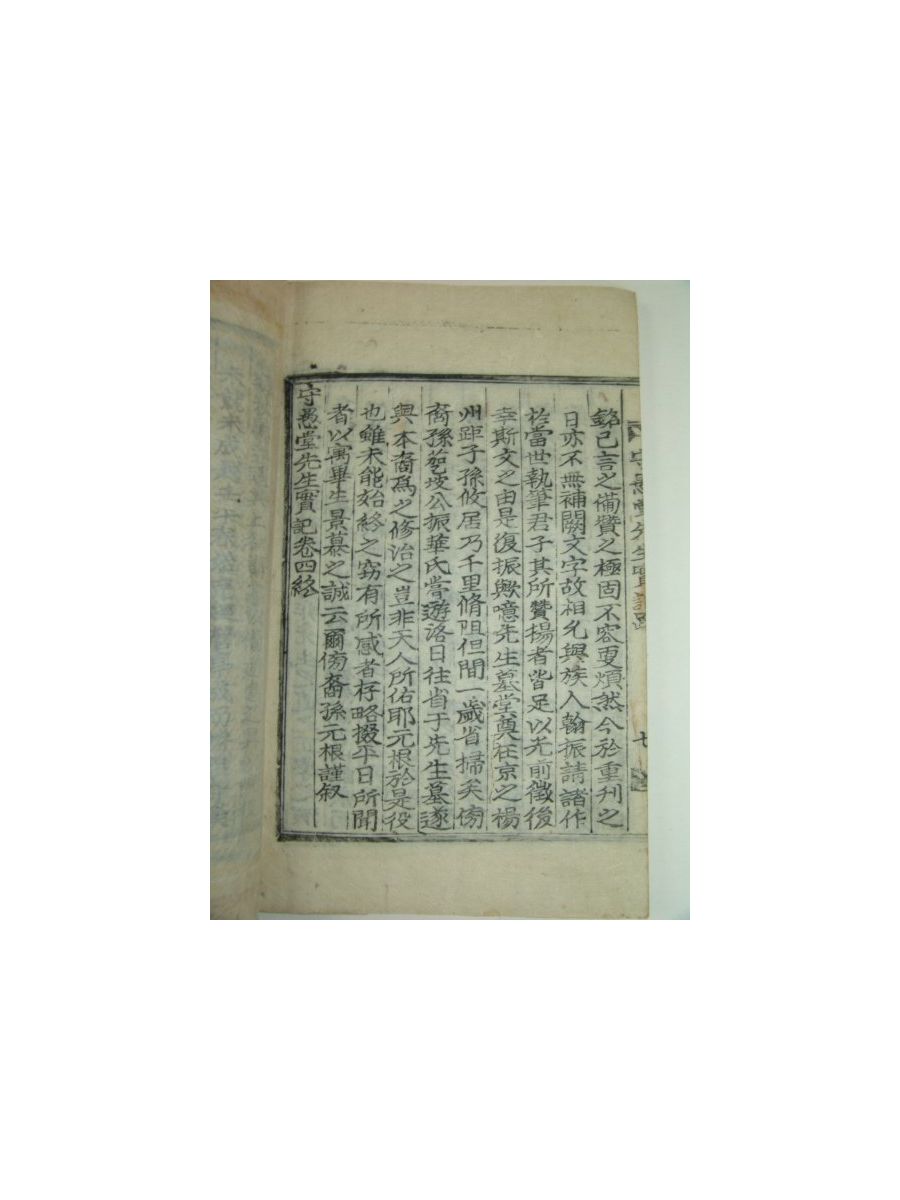 守愚堂先生實記
七
銘已言之備贊之極固不容更煩然今於重刊之
日亦不無補闕文字故相允與族人翰振請諸作
於當世執筆君子其所贊揚者皆足以光前徵後
幸斯文之由是復振歟噫先生墓堂奠在京之楊
州距子孫攸居乃千里脩阻但間一歲省掃矣傍
裔孫 坡公振華氏嘗遊洛日往省于先生墓遂
與本裔爲之修治之豈非天人所佑耶元根於是役
也雖未能始終之窃有所感者存略掇平日所聞
者以寓畢生景慕之誠云爾傍裔孫元根謹叙
守愚堂先生實記卷四終